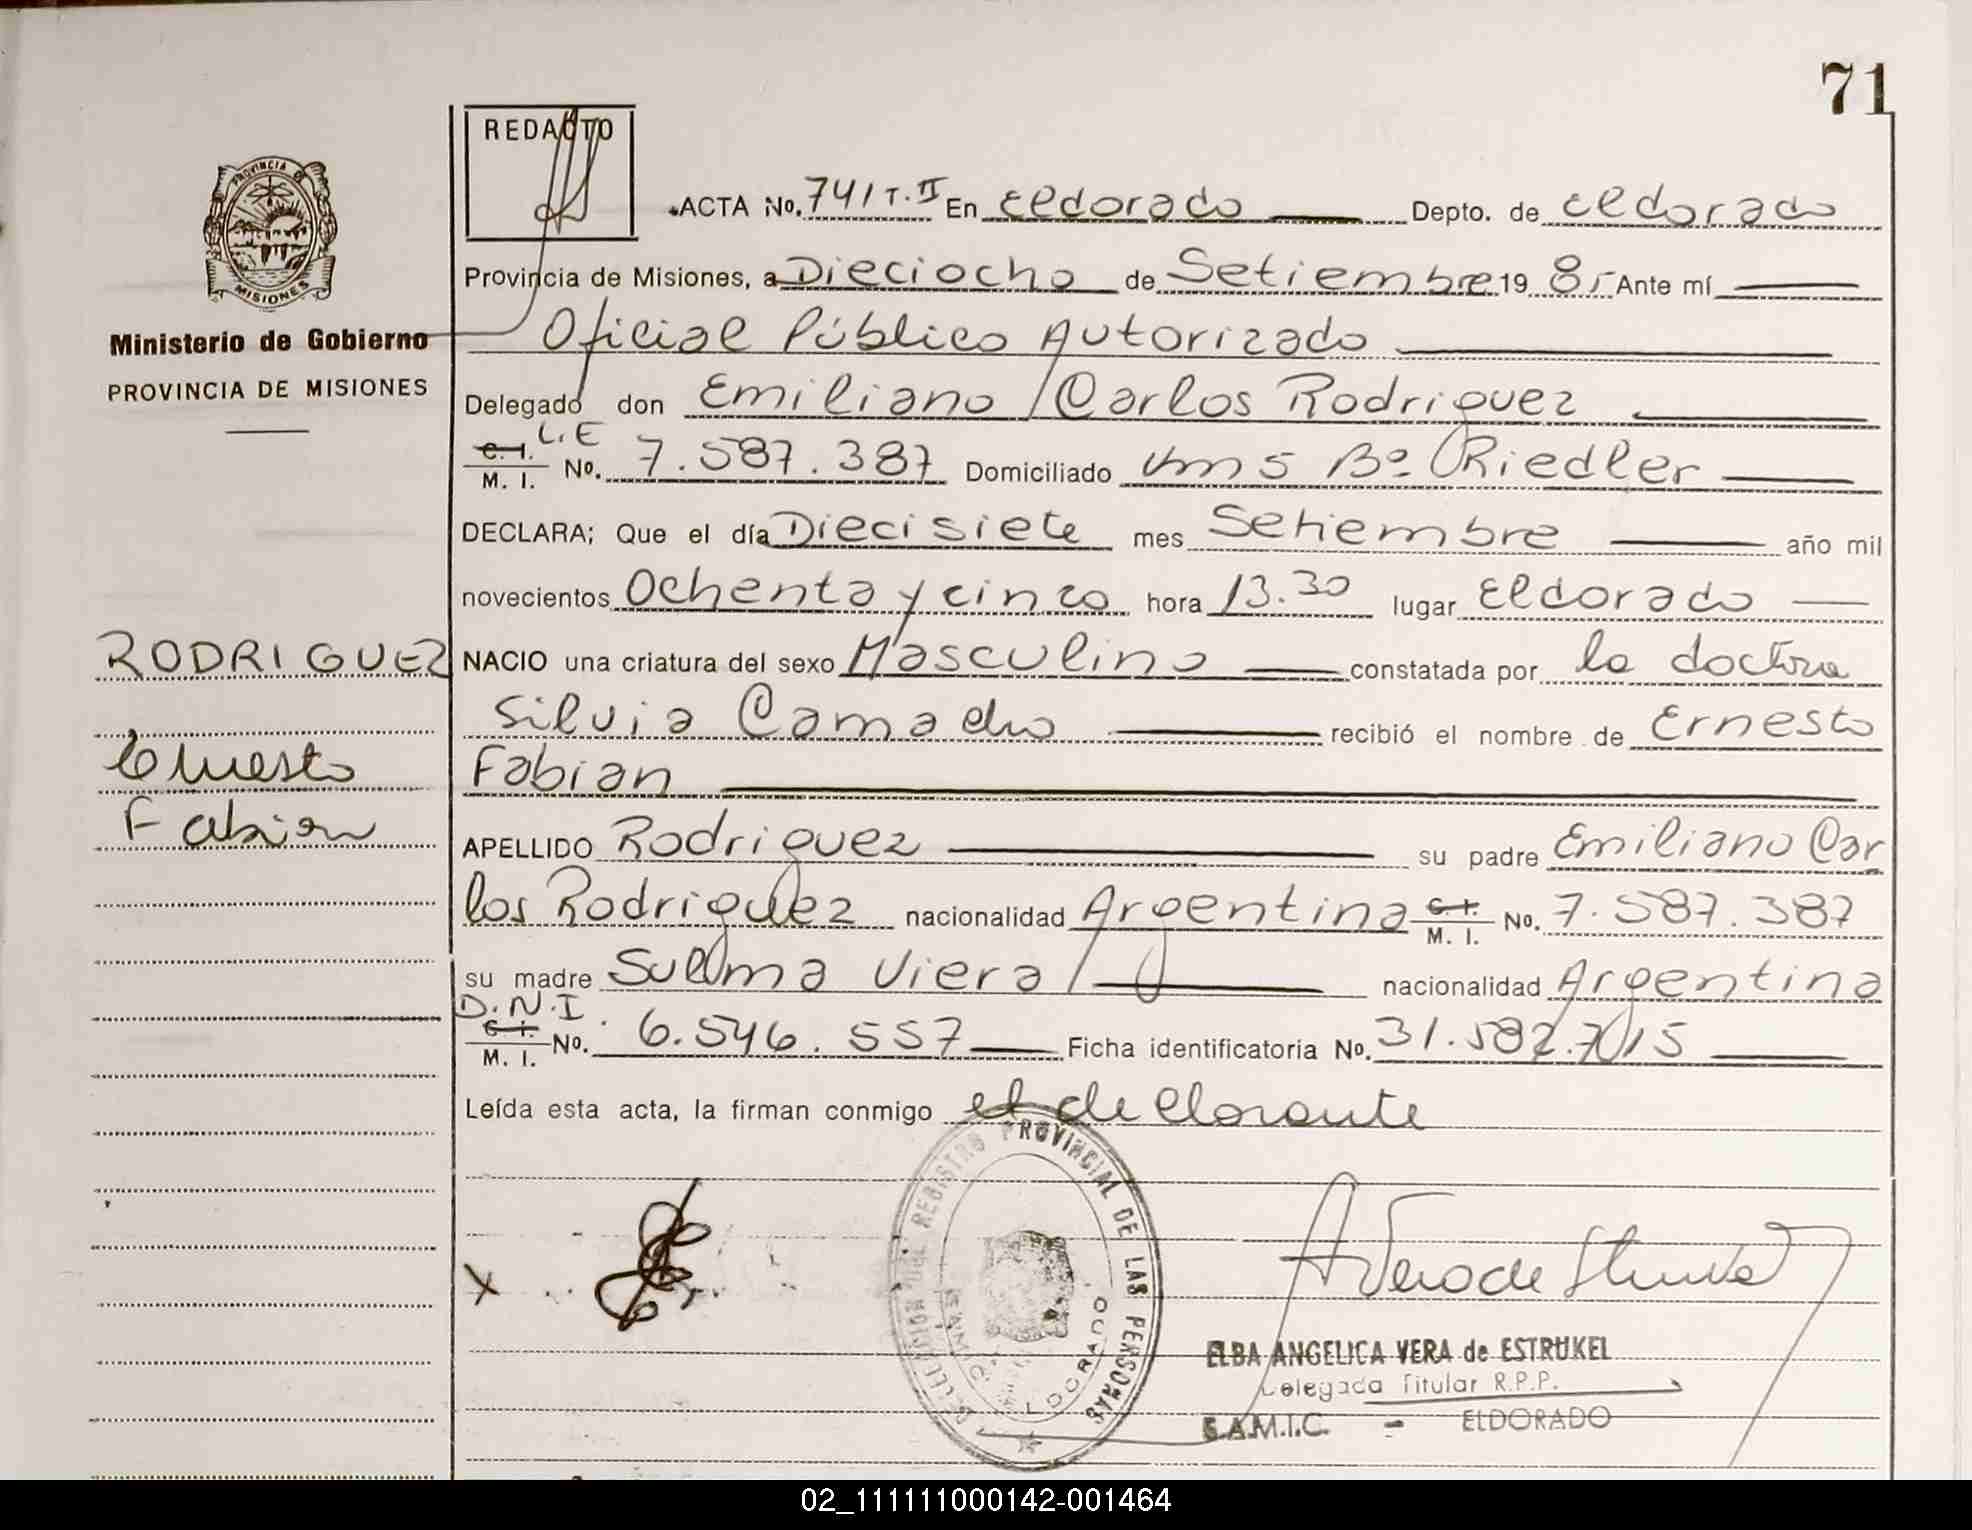 71
REDACTO
ACTA No. 741 T. II En Eldorado Depto. de Eldorado
Provincia de Misiones, a Dieciocho de Setiembre 19 85 Ante mí
Oficial Público Autorizado
Delegado don Emiliano Carlos Rodriguez
C. I. L.E
M. I. No. 7.587.387 Domiciliado Km 5 Bº Riedler
DECLARA; Que el día Diecisiete mes Setiembre año mil
novecientos Ochenta y cinco hora 13.30 lugar Eldorado
NACIO una criatura del sexo Masculino constatada por la doctora
Silvia Camacho recibió el nombre de Ernesto
Fabian
APELLIDO Rodriguez su padre Emiliano Car
los Rodriguez nacionalidad Argentina C. I. M. I. No. 7.587.387
su madre Suelma Viera nacionalidad Argentina
D.N.I
C. I. M. I. No. 6.546.557 Ficha identificatoria No. 31.582.7015
Leída esta acta, la firman conmigo el declarante
PROVINCIA DE MISIONES
Ministerio de Gobierno
PROVINCIA DE MISIONES
RODRIGUEZ
Ernesto
Fabian
X
DELEGACION DEL REGISTRO PROVINCIAL DE LAS PERSONAS
S.A.M.I.C. ELDORADO
A Vera de Estrukel
ELBA ANGELICA VERA de ESTRUKEL
Delegada Titular R.P.P.
S.A.M.I.C. - ELDORADO
02_111111000142-001464